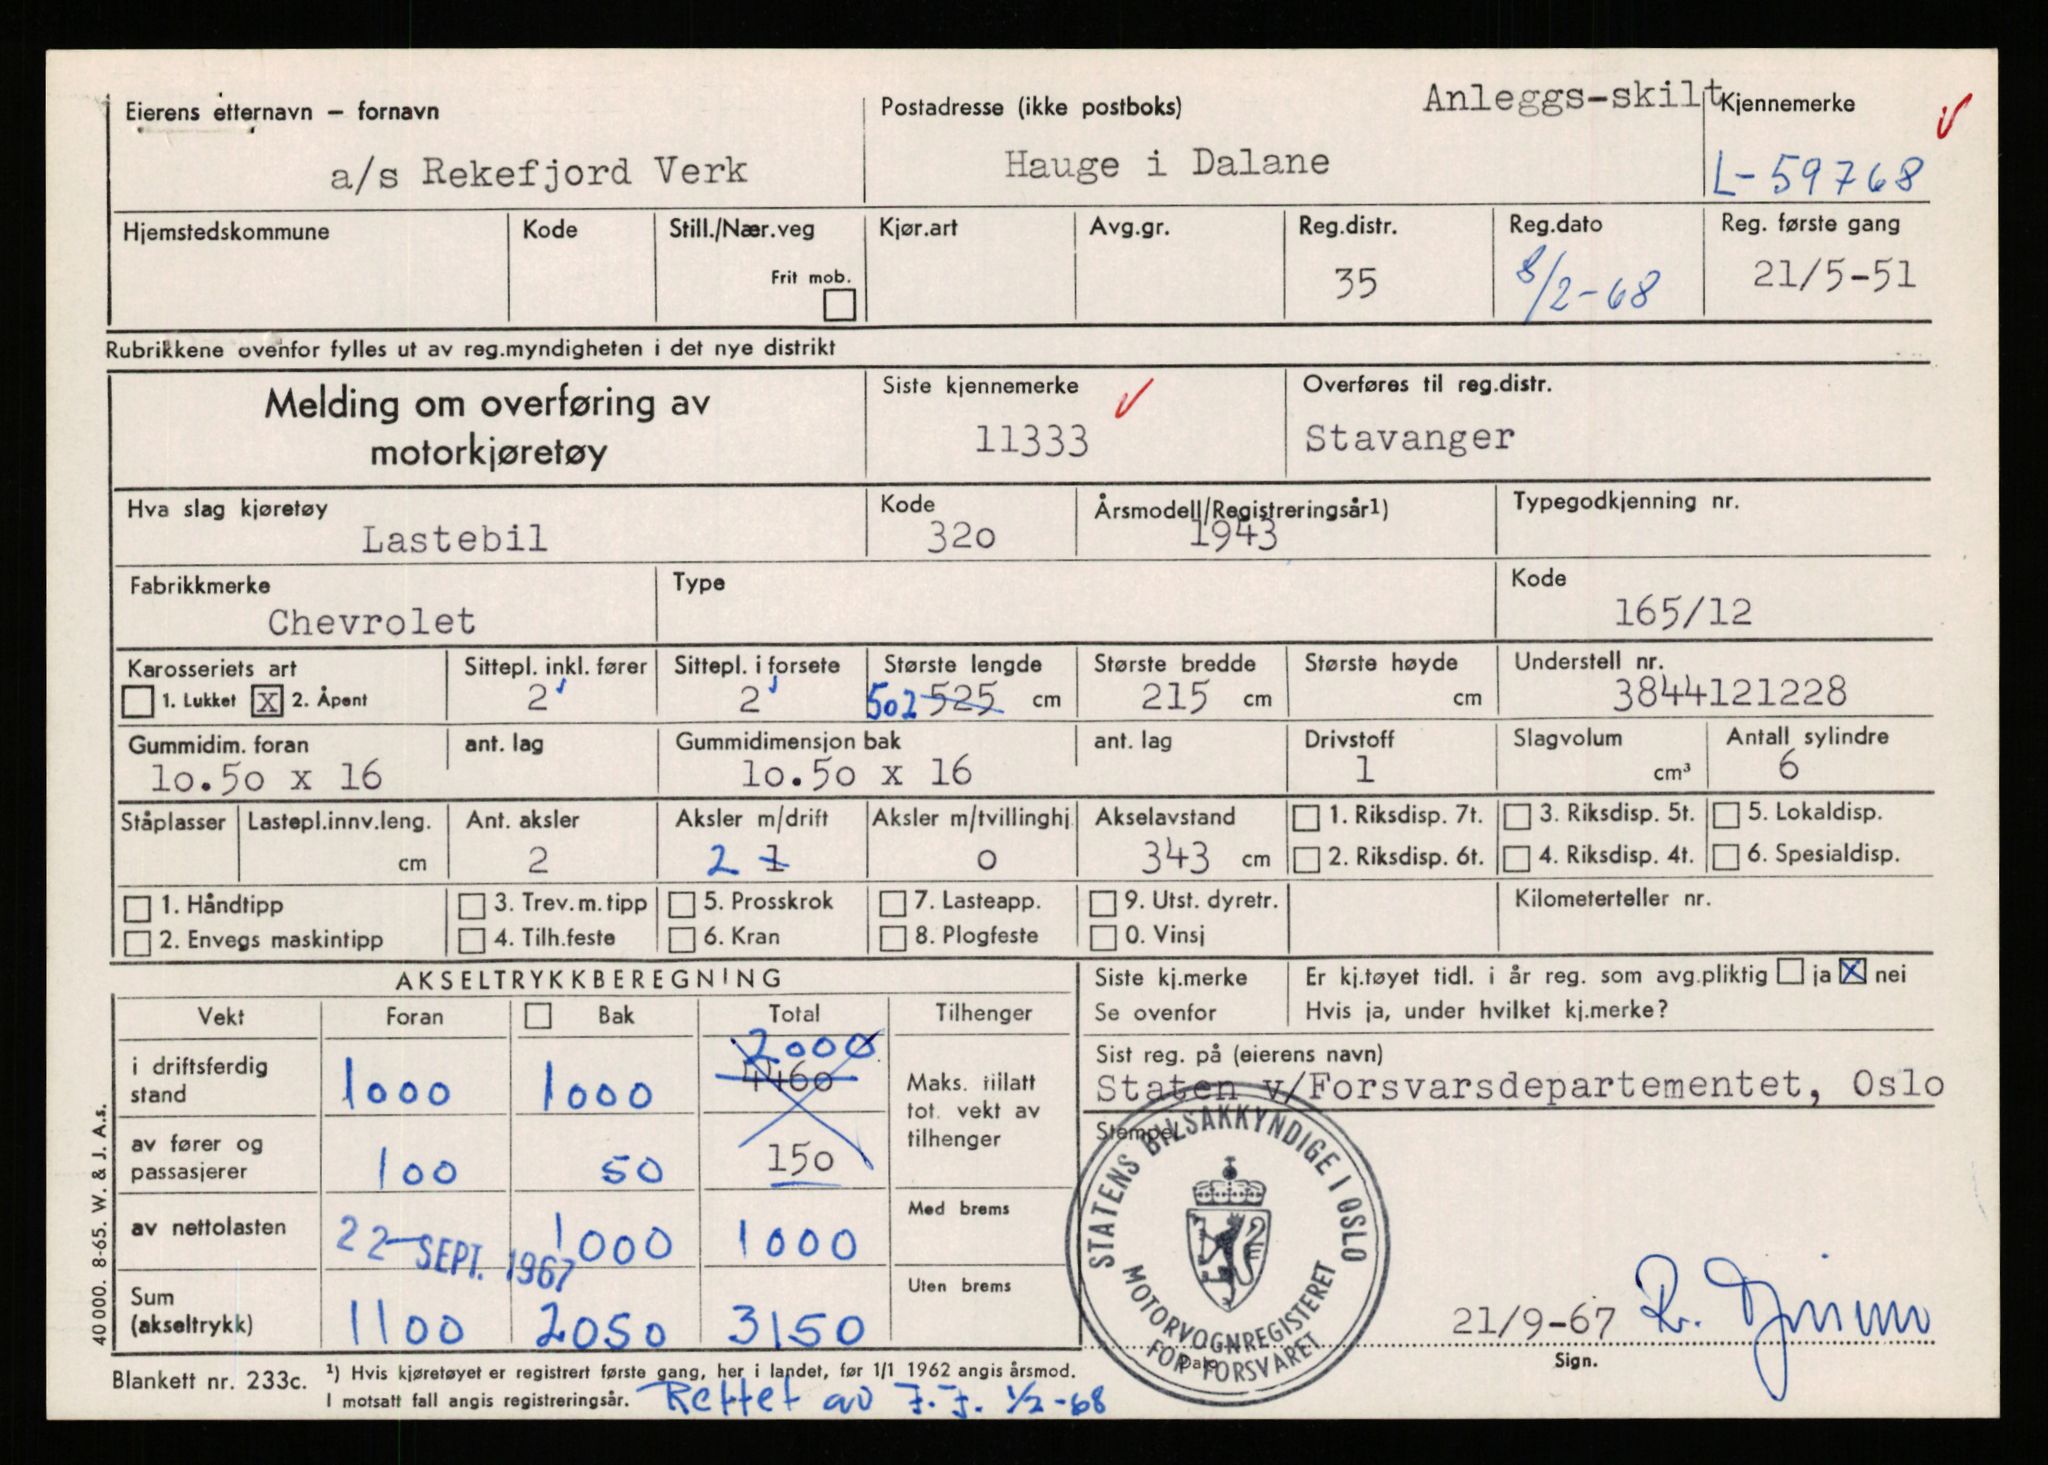 Anleggs-skilt
Eierens etternavn – fornavn
Postadresse (ikke postboks)
Kjennemerke
a/s Rekefjord Verk
Hauge i Dalane
L-59768
Hjemstedskommune
Kode
Still./Nær.veg
Frit mob.
Kjør.art
Avg.gr.
Reg.distr.
35
Reg.dato
8/2-68
Reg. første gang
21/5-51
Rubrikkene ovenfor fylles ut av reg.myndigheten i det nye distrikt
Melding om overføring av
motorkjøretøy
Siste kjennemerke
11333
Overføres til reg.distr.
Stavanger
Hva slag kjøretøy
Lastebil
Kode
320
Årsmodell/Registreringsår1)
1943
Typegodkjenning nr.
Fabrikkmerke
Chevrolet
Type
Kode
165/12
Karosseriets art
1. Lukket X 2. Åpent
Sittepl. inkl. fører
2
Sittepl. i forsete
2
Største lengde
502 525 cm
Største bredde
215 cm
Største høyde
cm
Understell nr.
3844121228
Gummidim. foran
10.50 x 16
ant. lag
Gummidimensjon bak
10.50 x 16
ant. lag
Drivstoff
1
Slagvolum
cm³
Antall sylindre
6
Ståplasser
Lastepl.innv.leng.
cm
Ant. aksler
2
Aksler m/drift
2 1
Aksler m/tvillinghj.
0
Akselavstand
343 cm
1. Riksdisp. 7t.
3. Riksdisp. 5t.
5. Lokaldisp.
2. Riksdisp. 6t.
4. Riksdisp. 4t.
6. Spesialdisp.
1. Håndtipp
3. Trev.m.tipp
5. Prosskrok
7. Lasteapp.
9. Utst. dyretr.
2. Envegs maskintipp
4. Tilh.feste
6. Kran
8. Plogfeste
0. Vinsj
Kilometerteller nr.
AKSELTRYKKBEREGNING
Vekt
Foran
Bak
Total
Tilhenger
i driftsferdig
stand
1000
1000
2000
4460
Maks. tillatt
tot. vekt av
tilhenger
av fører og
passasjerer
100
50
150
av nettolasten
1000
1000
Med brems
22 SEPT. 1967
Sum
(akseltrykk)
1100
2050
3150
Uten brems
Siste kj.merke
Se ovenfor
Er kj.tøyet tidl. i år reg. som avg.pliktig ja X nei
Hvis ja, under hvilket kj.merke?
Sist reg. på (eierens navn)
Staten v/Forsvarsdepartementet, Oslo
Stempel
STATENS BILSAKKYNDIGE I OSLO
MOTORVOGNREGISTERET
FOR FORSVARET
21/9-67
Dato
Sign.
40 000. 8-65. W. & J. A.s.
Blankett nr. 233c.
1) Hvis kjøretøyet er registrert første gang, her i landet, før 1/1 1962 angis årsmod.
I motsatt fall angis registreringsår.
Rettet av J.J. 1/2-68